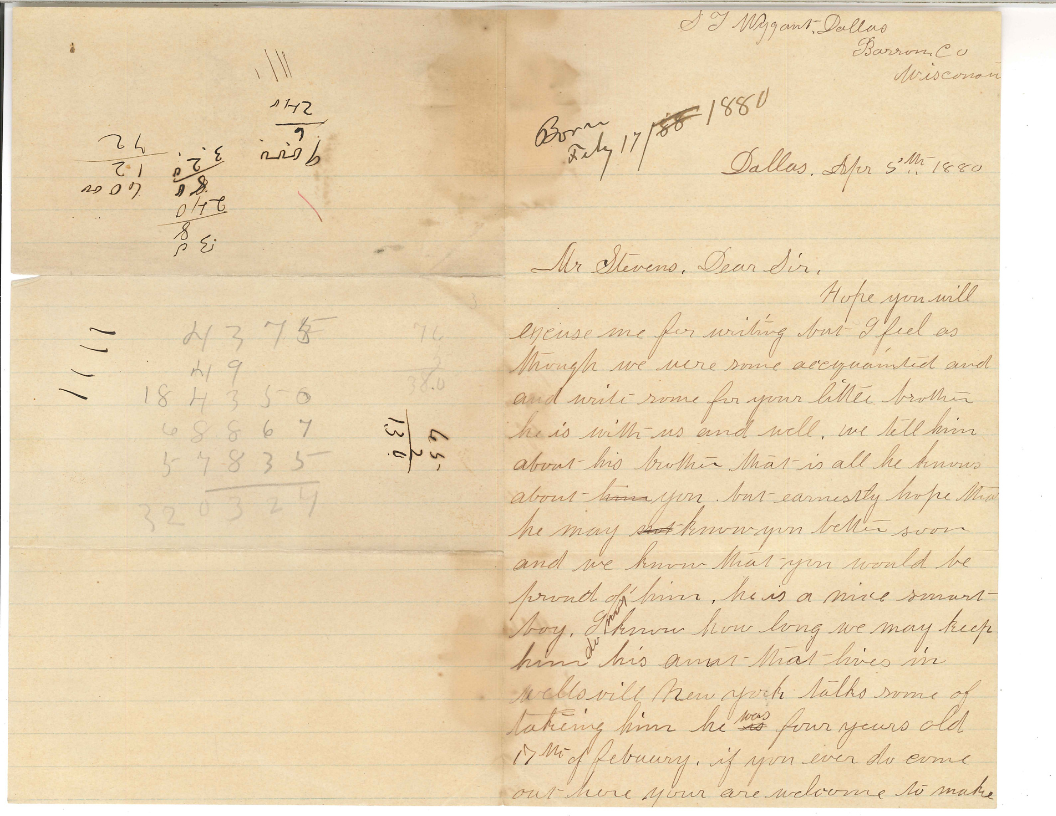 S T Wygant. Dallas
Barron, Co
Wisconsin
Born
Feby 17/88 1880
Dallas. Apr 5th. 1880
Mr Stevens. Dear Sir.
Hope you will
excuse me for writing but I feel as
though we were some accquainted and
and write some for your little brother
he is with us and well. we tell him
about his brother that is all he knows
about him you. but earnestly hope that
he may know you better soon
and we know that you would be
proud of him. he is a nice smart
boy. I do not know how long we may keep
him his aunt that lives in
wellsvill New york talks some of
takeing him he is was four years old
17th of febuary. if you ever do come
out here your are welcome to make
4 3 7 5
4 9
18 4 3 5 0
6 8 8 6 7
5 7 8 3 5
3 2 0 3 2 7
76
2
38.0
65
2
13 0
24
6
72
12
60
3.2
8
240
8
3